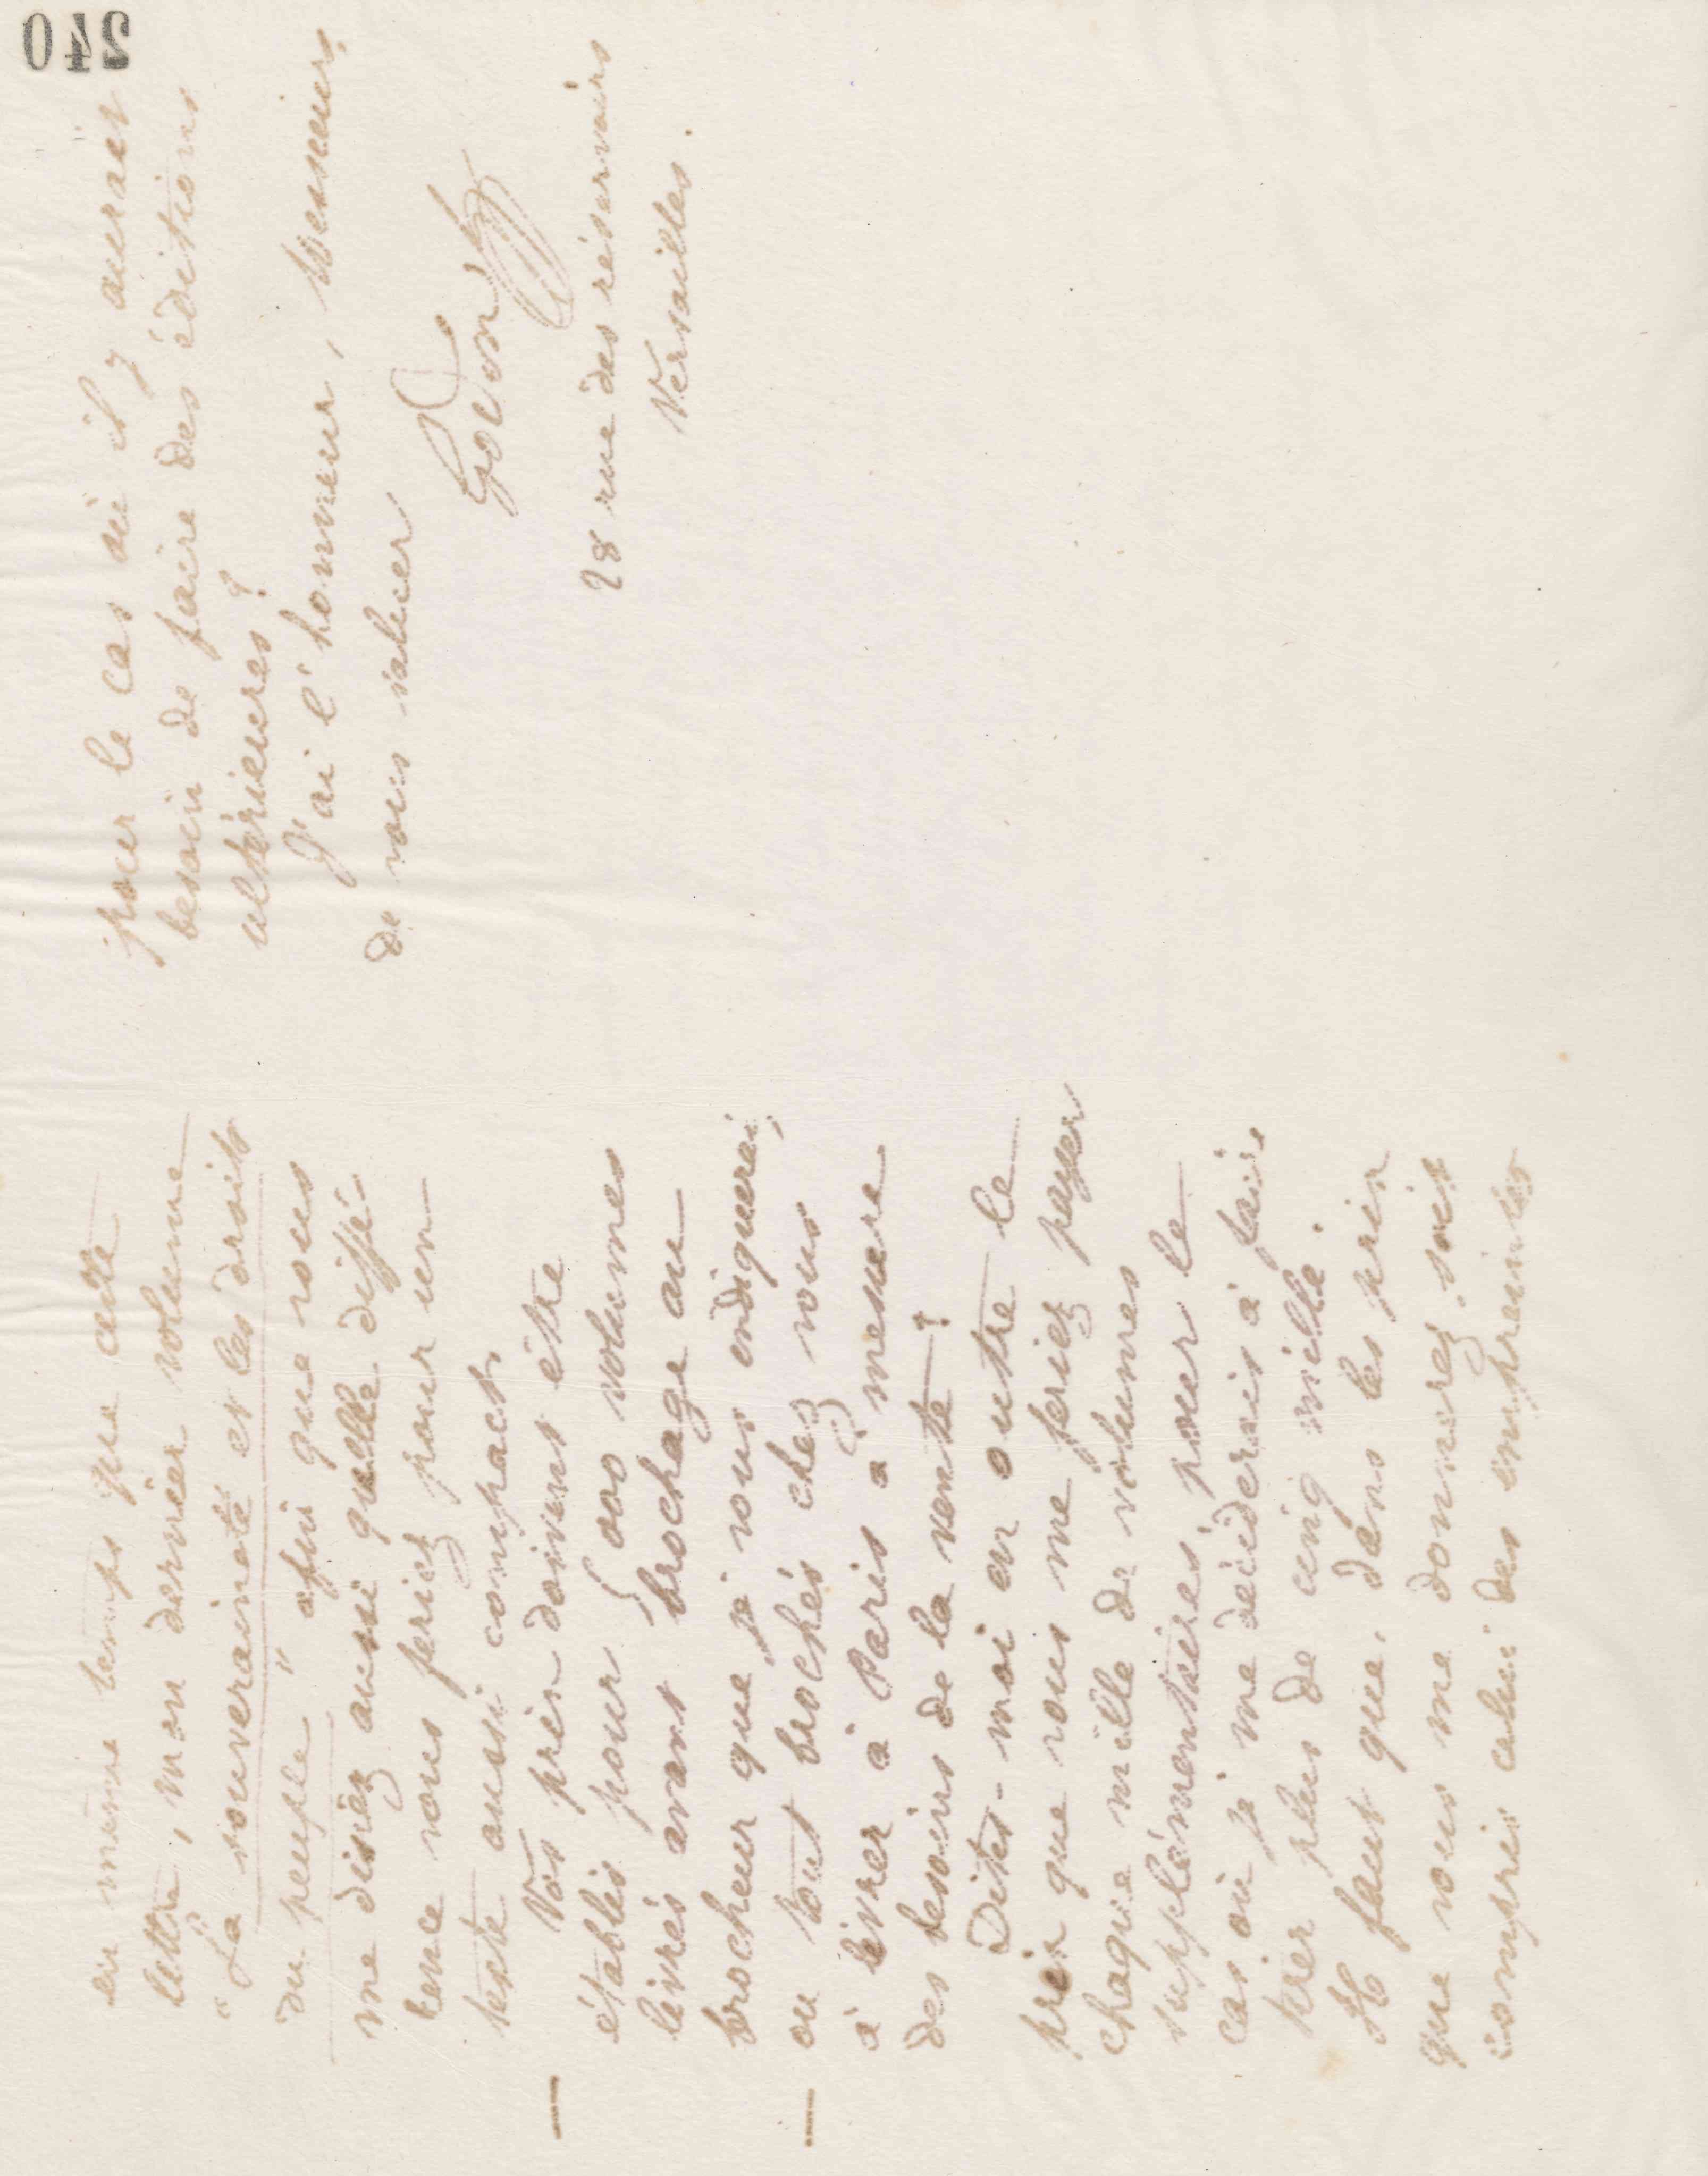 en même temps que cette
lettre, mon dernier volume
"La souveraineté et les droits
du peuple" afin que vous
me disiez aussi quelle diffé-
rence vous feriez pour un
texte aussi compact.
— Vos prix doivent être
établis pour 5 000 volumes
livrés avant brochage au
brocheur que je vous indiquerai,
— ou tout brochés chez vous
à livrer à Paris à mesure
des besoins de la vente ?
Dites-moi en outre le
prix que vous me feriez payer
chaque mille de volumes
supplémentaires, pour le
cas où je me déciderais à faire
tirer plus de cinq mille.
Il faut que, dans les prix
que vous me donnerez, soit
compris celui des empreintes
pour le cas où il y aurait
besoin de faire des éditions
ultérieures ?
J'ai l'honneur, Messieurs,
de vous saluer
Godin
28 rue des réservoirs
Versailles.
240